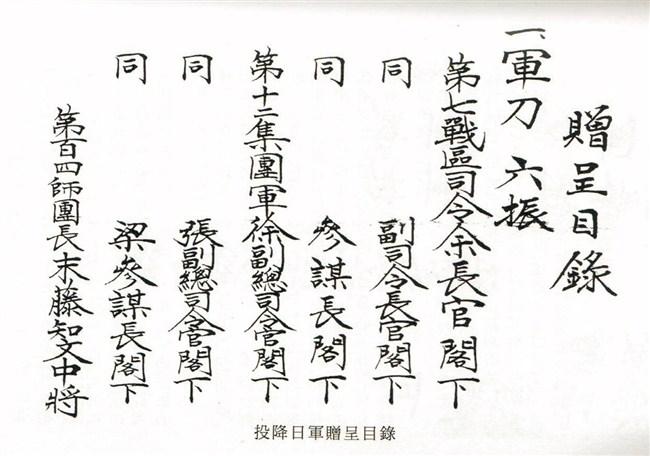 贈呈目錄
一、軍刀 六振
第七戰區司令余長官閣下
同 副司令長官閣下
同 參謀長閣下
第十二集團軍徐副總司令官閣下
同 張副總司令官閣下
同 梁參謀長閣下
第百四師團長末藤知文中將
投降日軍贈呈目錄